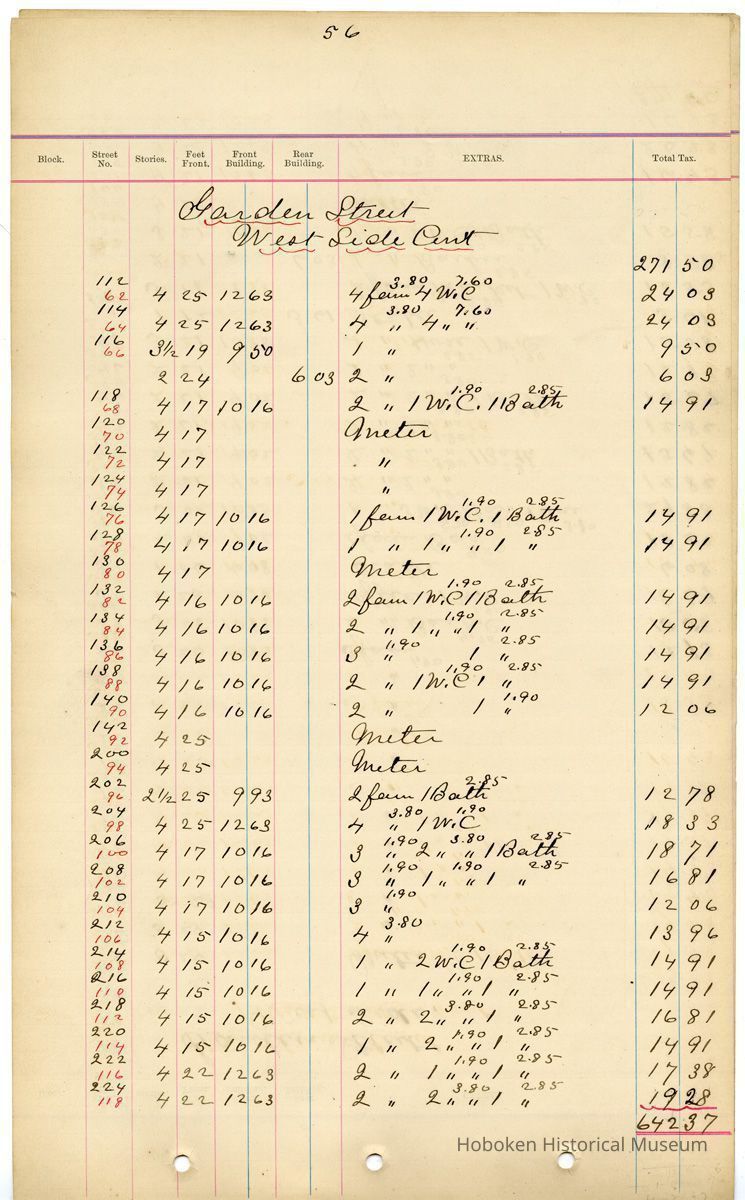 56
Block. Street No. Stories. Feet Front. Front Building. Rear Building. EXTRAS. Total Tax.
Garden Street
West Side Cont
271 50
112 3.80 7.60
62 4 25 12 63 4 fam 4 W.C 24 03
114 3.80 7.60
64 4 25 12 63 4 " 4 " " 24 03
116
66 3½ 19 9 50 1 " 9 50
2 24 6 03 2 " 6 03
118 1.90 2.85
68 4 17 10 16 2 " 1 W.C. 1 Bath 14 91
120
70 4 17 Meter
122
72 4 17 "
124
74 4 17 "
126 1.90 2.85
76 4 17 10 16 1 fam 1 W.C. 1 Bath 14 91
128 1.90 2.85
78 4 17 10 16 1 " 1 " " 1 " 14 91
130
80 4 17 Meter
132 1.90 2.85
82 4 16 10 16 2 fam 1 W.C 1 Bath 14 91
134 1.90 2.85
84 4 16 10 16 2 " 1 " " 1 " 14 91
136 1.90 2.85
86 4 16 10 16 3 " 1 " 14 91
138 1.90 2.85
88 4 16 10 16 2 " 1 W.C 1 " 14 91
140 1.90
90 4 16 10 16 2 " 1 " 12 06
142
92 4 25 Meter
200
94 4 25 Meter
202 2.85
96 2½ 25 9 93 2 fam 1 Bath 12 78
204 3.80 1.90
98 4 25 12 63 4 " 1 W.C 18 33
206 1.90 3.80 2.85
100 4 17 10 16 3 " 2 " " 1 Bath 18 71
208 1.90 1.90 2.85
102 4 17 10 16 3 " 1 " " 1 " 16 81
210 1.90
104 4 17 10 16 3 " 12 06
212 3.80
106 4 15 10 16 4 " 13 96
214 1.90 2.85
108 4 15 10 16 1 " 2 W.C 1 Bath 14 91
216 1.90 2.85
110 4 15 10 16 1 " 1 " " 1 " 14 91
218 3.80 2.85
112 4 15 10 16 2 " 2 " " 1 " 16 81
220 1.90 2.85
114 4 15 10 16 1 " 2 " " 1 " 14 91
222 1.90 2.85
116 4 22 12 63 2 " 1 " " 1 " 17 38
224 3.80 2.85
118 4 22 12 63 2 " 2 " " 1 " 19 28
642 37
Hoboken Historical Museum